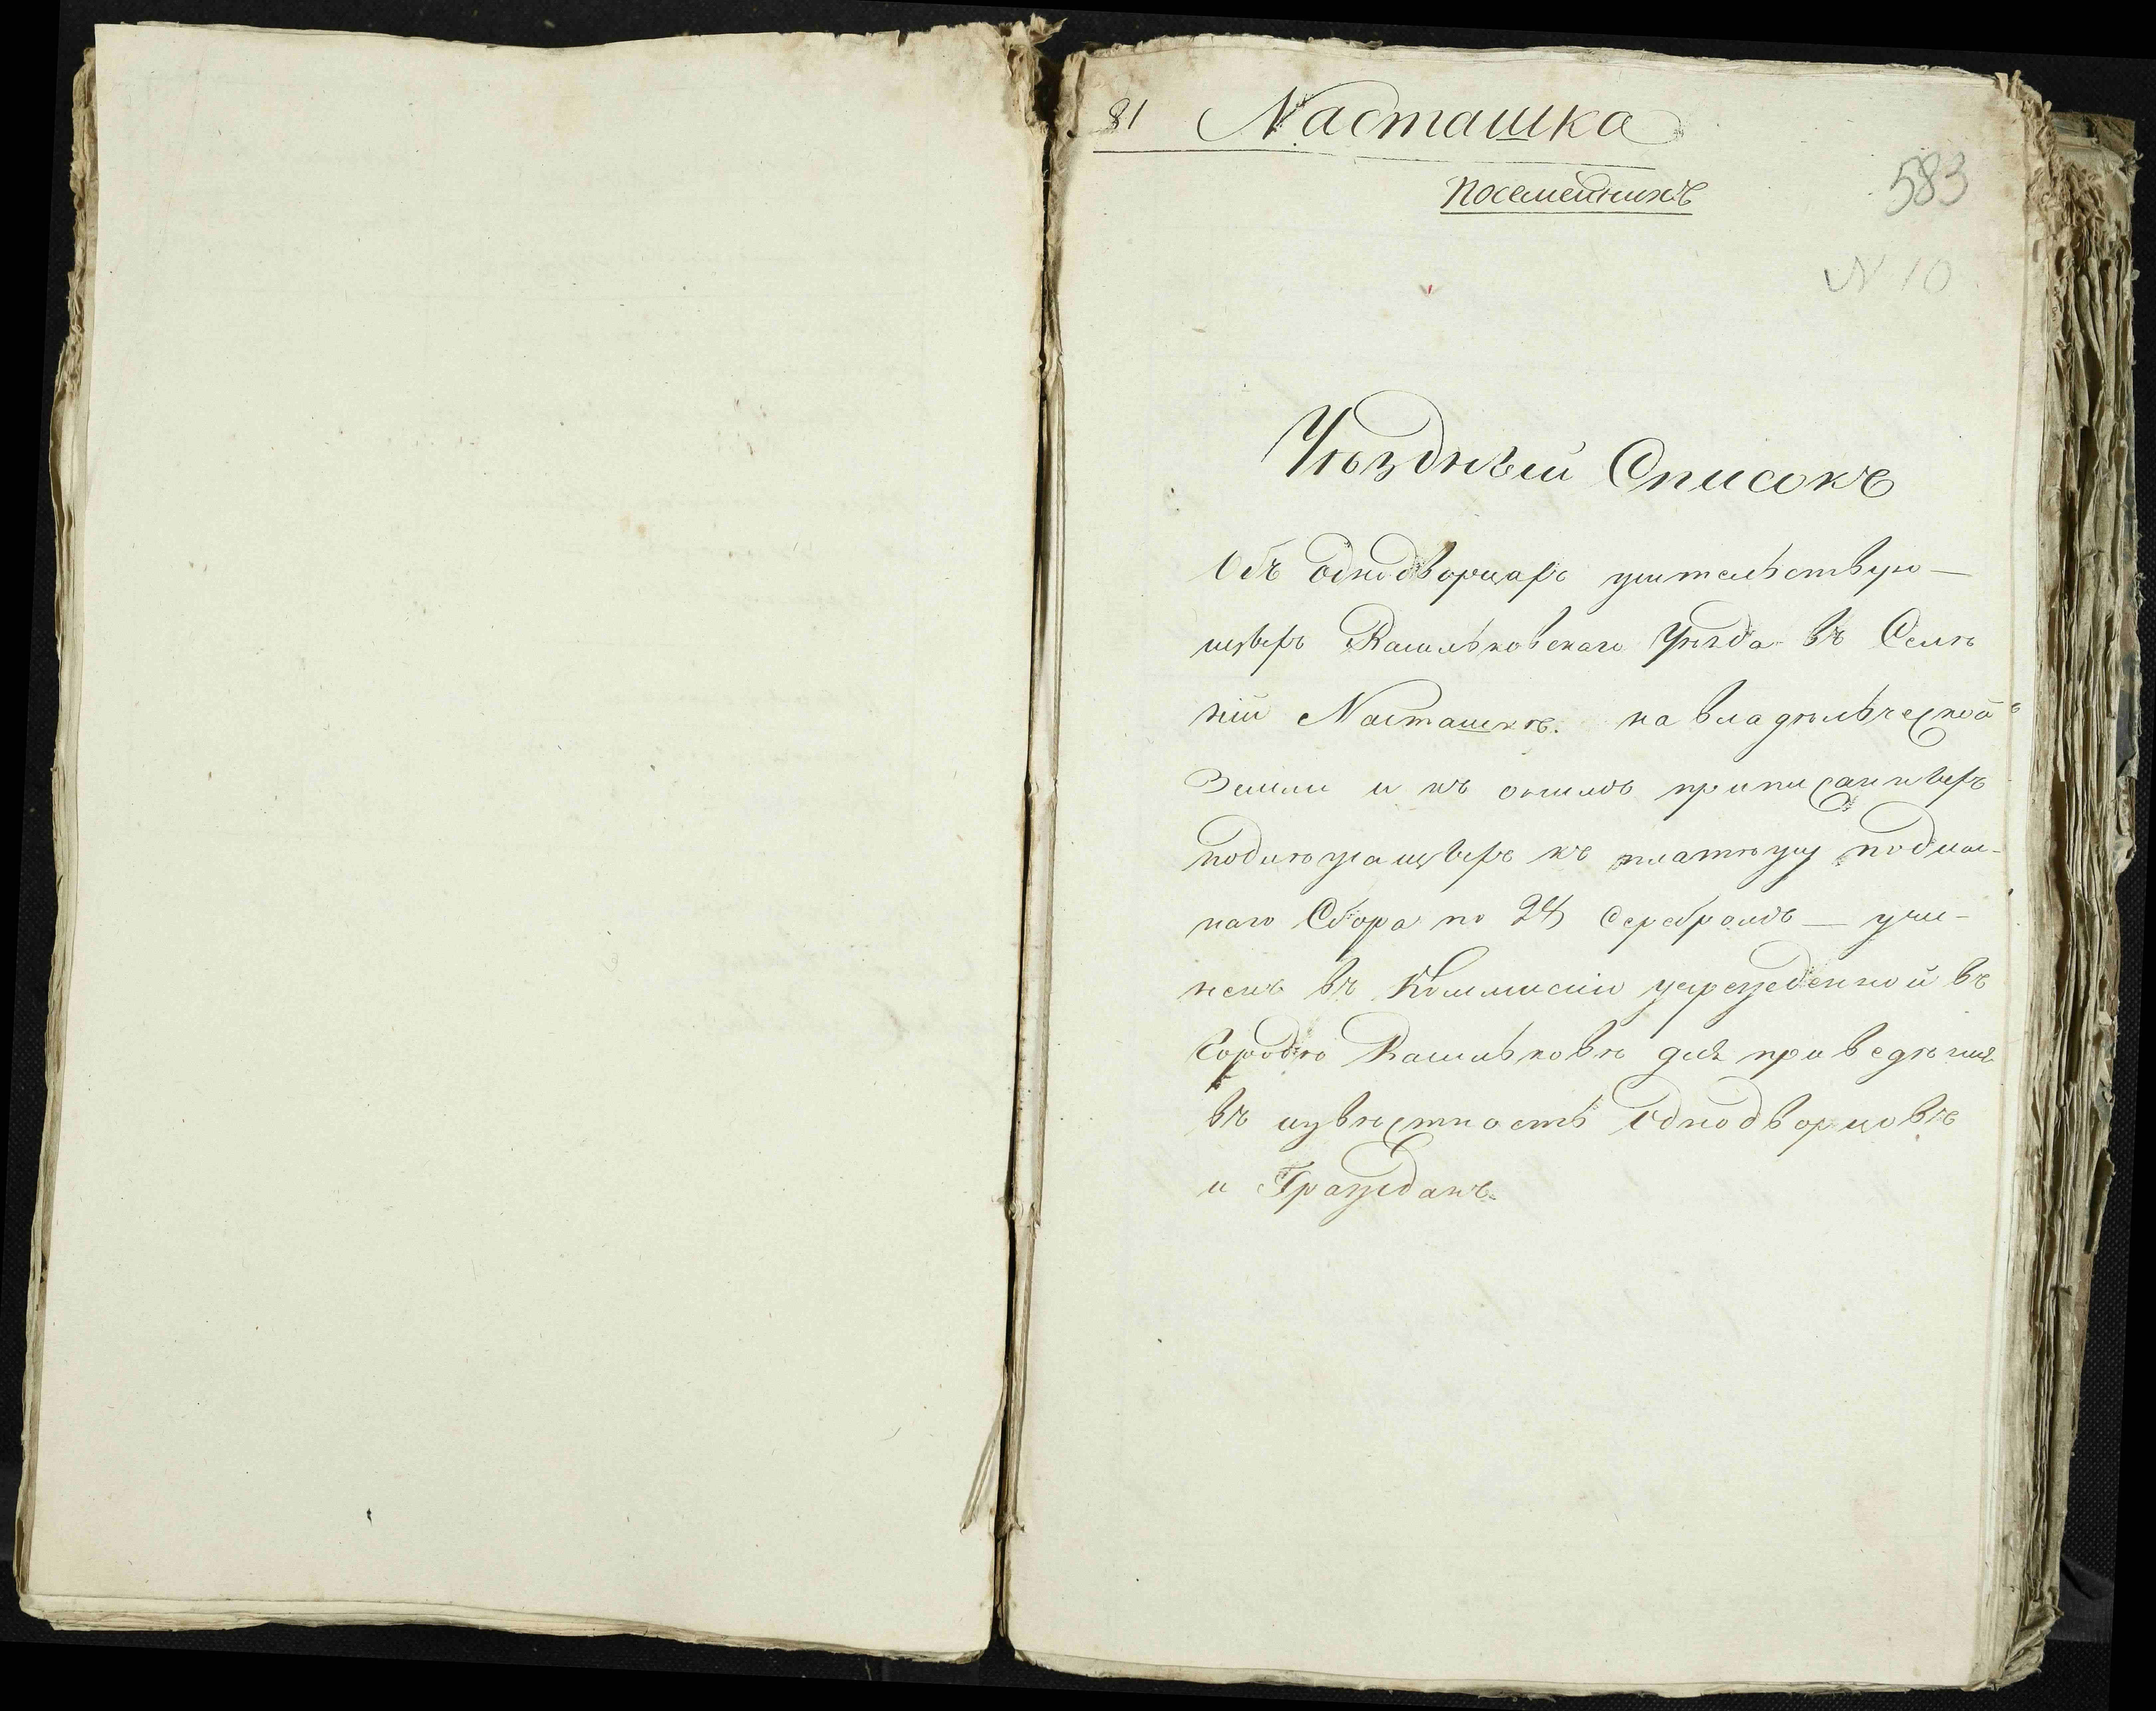 81 Насташка
Посемейникъ
583
N 10
Уѣздный Списокъ
Объ Однодворцахъ жительствую-
щыхъ Васильковскаго Уѣзда въ Селѣ
ніи Насташкѣ. на владѣльческой
Земли и къ онымъ приписанныхъ
подлѣжащыхъ къ платѣжу подым-
наго Сбора по Серебромъ — учи-
ненъ въ Коммисіи учрежденной въ
Городѣ Васильковѣ для приведѣния
въ извѣстность Однодворцовъ
и Гражданъ.